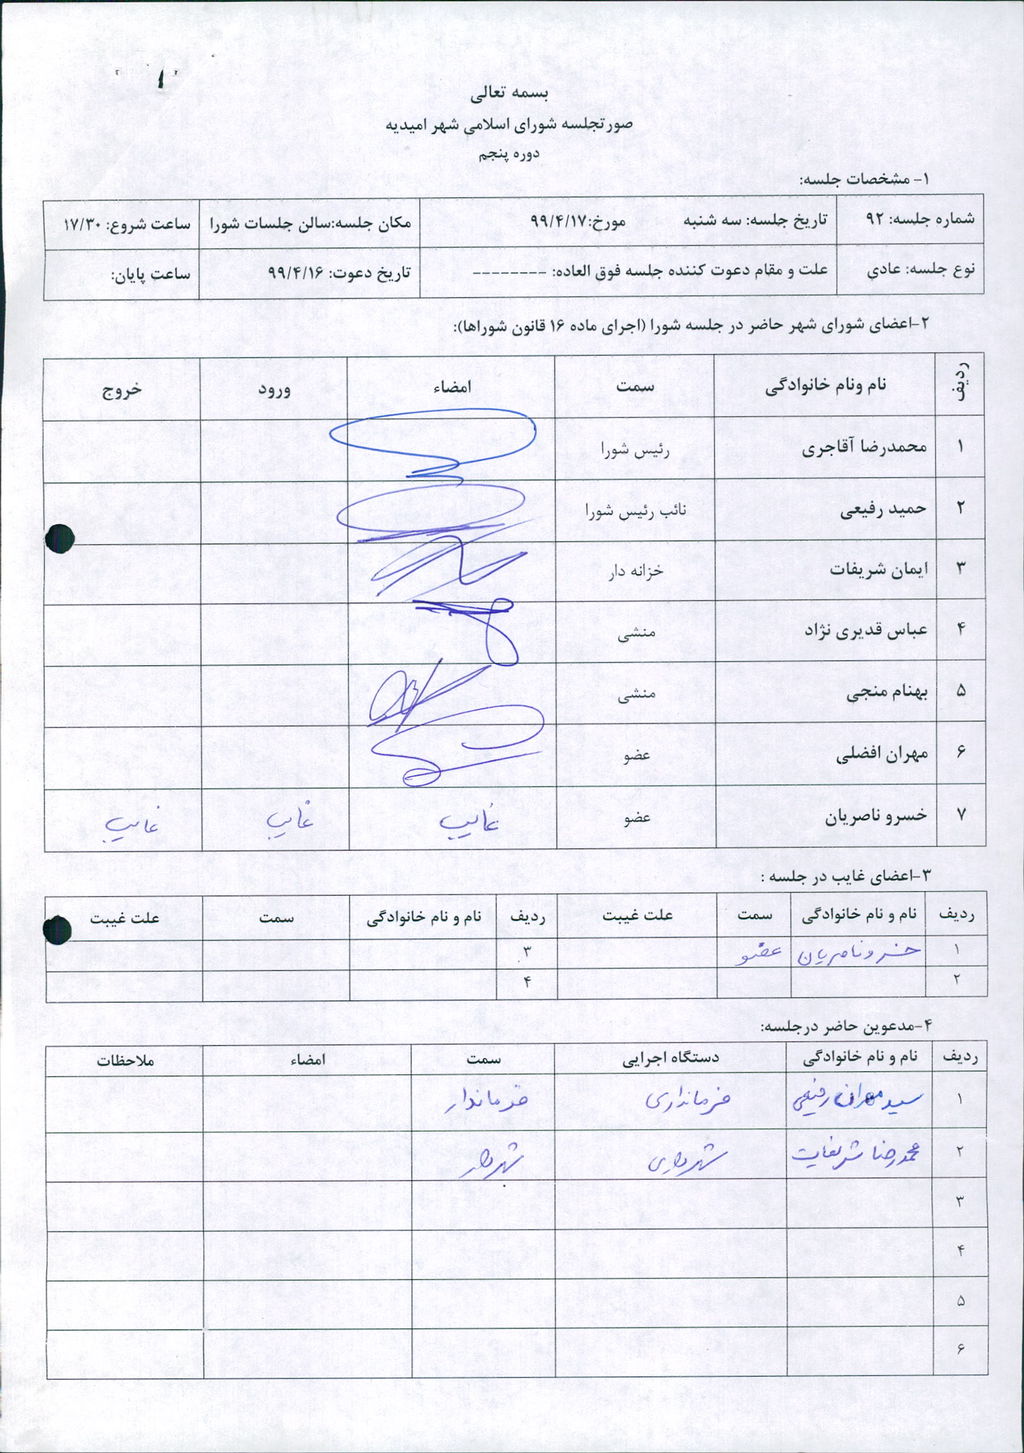 بسمه تعالی
صورتجلسه شورای اسلامی شهر امیدیه
دوره پنجم
۱- مشخصات جلسه:
شماره جلسه: ۹۲ تاریخ جلسه: سه شنبه مورخ:۹۹/۴/۱۷ مکان جلسه:سالن جلسات شورا ساعت شروع: ۱۷/۳۰
نوع جلسه: عادی علت و مقام دعوت کننده جلسه فوق العاده: -------- تاریخ دعوت: ۹۹/۴/۱۶ ساعت پایان:
۲-اعضای شورای شهر حاضر در جلسه شورا (اجرای ماده ۱۶ قانون شوراها):
ردیف نام ونام خانوادگی سمت امضاء ورود خروج
۱ محمدرضا آقاجری رئیس شورا
۲ حمید رفیعی نائب رئیس شورا
۳ ایمان شریفات خزانه دار
۴ عباس قدیری نژاد منشی
۵ بهنام منجی منشی
۶ مهران افضلی عضو
۷ خسرو ناصریان عضو غایب غایب غایب
۳-اعضای غایب در جلسه :
ردیف نام و نام خانوادگی سمت علت غیبت ردیف نام و نام خانوادگی سمت علت غیبت
۱ خسرو ناصریان عضو ۳
۲ ۴
۴-مدعوین حاضر درجلسه:
ردیف نام و نام خانوادگی دستگاه اجرایی سمت امضاء ملاحظات
۱ سید مهران رفیعی فرمانداری فرماندار
۲ محمدرضا شریفات شهرداری شهردار
۳
۴
۵
۶